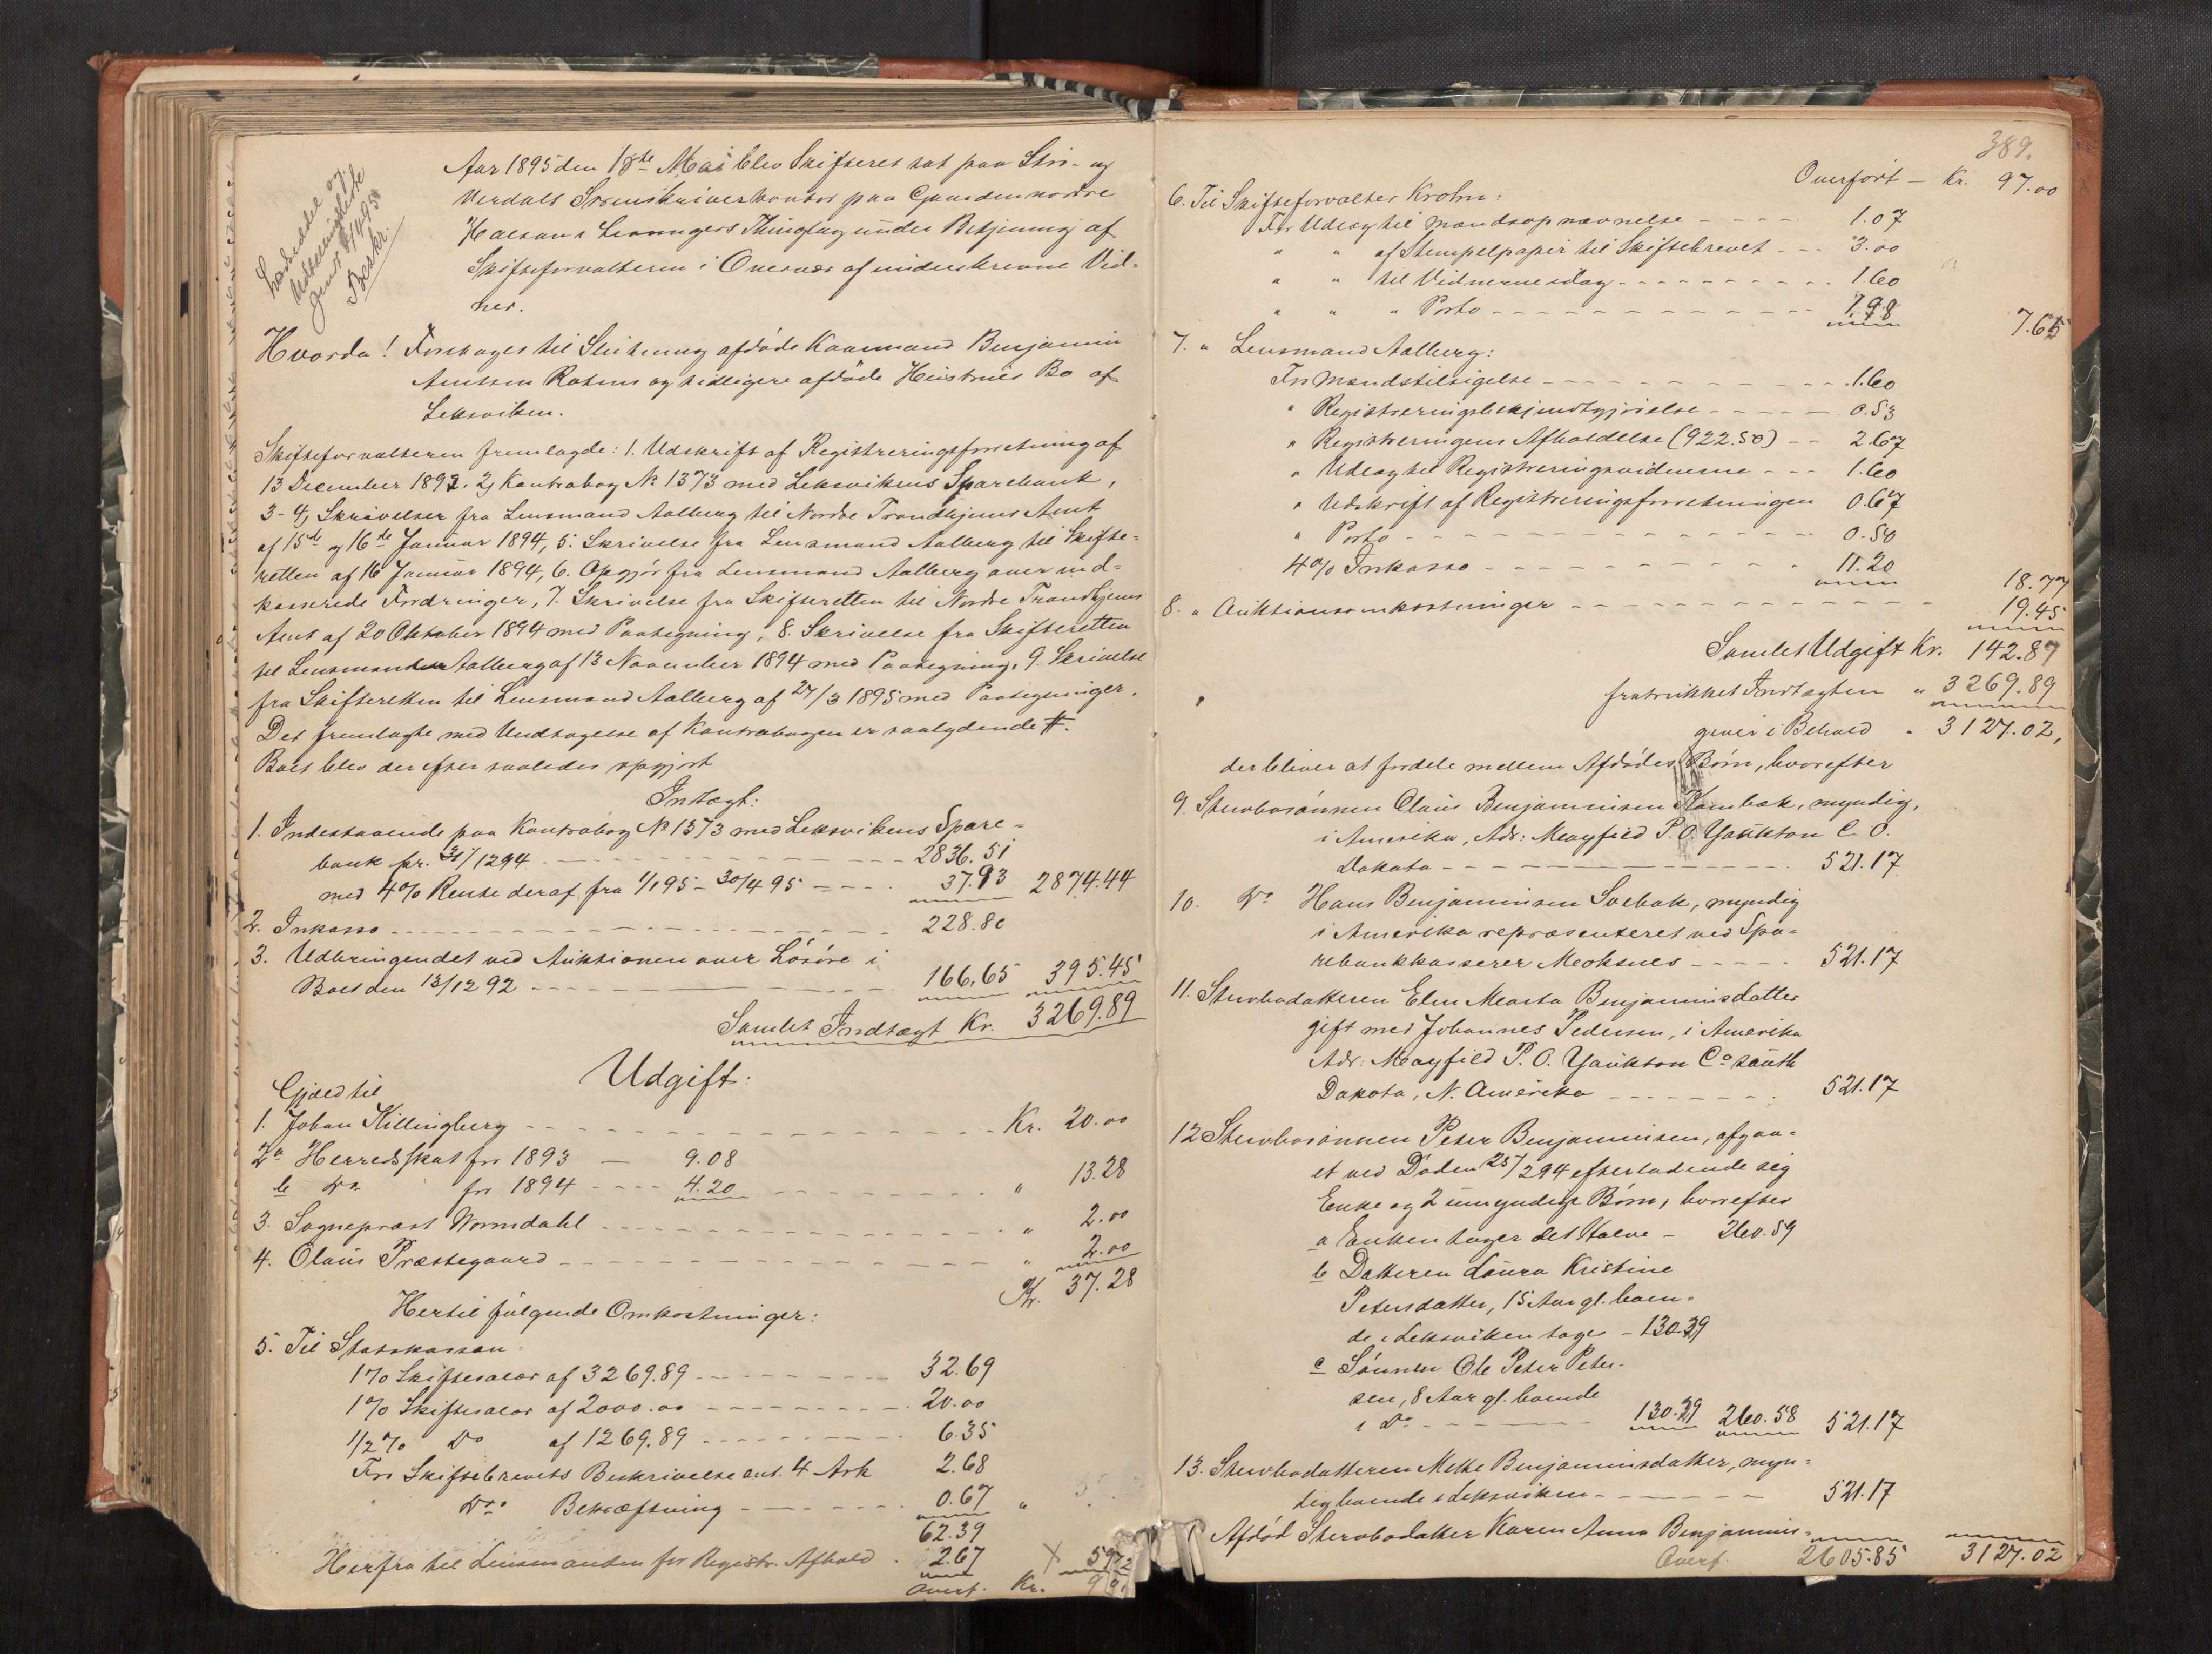 Udbetalingsliste
Beskr.
Aar 1895 den 18de Mai blev Skifteret sat paa Stør- og
Verdals Sorenskriverkontor paa Gaarden nordre
Halsan i Levangers Thinglag under Betjening af
Skifteforvalteren i Overvær af underskrevne Vid-
ner.
Hvorda! Foretoges til Slutning afdøde Kaarmand Benjamin
Arntsen Rotens og tidligere afdøde Hustrues Bo af
Leksviken.
Skifteforvalteren fremlagde: 1. Udskrift af Registreringsforretning af
13 December 1892. 2, Kontrabog No 1373 med Leksvikens Sparebank,
3-4, Skrivelser fra Lensmand Aalberg til Nordre Trondhjems Amt
af 15de og 16de Januar 1894, 5. Skrivelse fra Lensmand Aalberg til Skifte-
retten af 16 Januar 1894, 6. Opgjør fra Lensmand Aalberg over ind-
kasserede Fordringer, 7. Skrivelse fra Skifteretten til Nordre Trondhjems
Amt af 20 Oktober 1894 med Paategning, 8. Skrivelse fra Skifteretten
til Lensmanden Aalberg af 13 November 1894 med Paategning. 9. Skrivelse
fra Skifteretten til Lensmand Aalberg af 27/3 1895 med Paategninger.
Det fremlagte med Undtagelse af Kontrabogen er saalydende #.
Boet blev derefter saaledes opgjort
Indtægt:
1. Indestaaende paa Kontrabog No 1373 med Leksvikens Spare-
bank pr. 31/12 94 - 2836.51
med 4% Rente deraf fra 1/1 95 - 30/4 95 - 37.93 2874.44
2. Inkasso - 228.80
3. Udbringendet ved Auktionen over Løsøre i
Boet den 13/12 92 - 166.65 395.45
Samlet Indtægt Kr. 3269.89
Udgift:
Gjæld til
1. Johan Killingberg - Kr. 20.00
2 a Herredsskat for 1893 - 9.08
b Do for 1894 - 4.20 - " 13.28
3. Sogneprest Wormdahl - " 2.00
4. Olaus Præstegaard - " 2.00
Kr. 37.28
Hertil følgende Omkostninger:
5. Til Statskassen:
1% Skiftesalær af 3269.89 - 32.69
1% Skiftesalær af 2000.00 - 20.00
1/2% Do af 1269.89 - 6.35
For Skiftebrevets Beskrivelse ant. 4 Ark 2.68
Do Bekræftning - 0.67 "
62.39
Herfra til Lensmanden for Registr. Afhold. 2.67 X 59.72
Overf. Kr. 97.00
389.
Overført - Kr. 97.00
6. Til Skifteforvalter Krohn:
For Udlæg til Mandsopnævnelse - 1.07
" " af Stempelpapir til Skiftebrevet - 3.00
" " til Vidnerne idag - 1.60
" " " Porto - 1.98 7.65
7. " Lensmand Aalberg:
For Mandstilsigelse - 1.60
" Registreringsbekjendtgjørelse - 0.53
" Registreringens Afholdelse (922.50) - 2.67
" Udlæg til Registreringsvidnerne - 1.60
" Udskrift af Registreringsforretningen 0.67
" Porto - 0.50
4% Inkasso - 11.20 18.77
8. " Auktionsomkostninger - 19.45
Samlet Udgift Kr. 142.87
fratrukket Indtægten " 3269.89
giver i Behold " 3127.02,
der bliver at fordele mellem Afdødes Børn, hvorefter
9. Stervbosønnen Claus Benjaminsen Kambæk, myndig,
i Amerika, Adr: Mayfield P.O. Yankton C.O.
Dakota - 521.17
10. Do Hans Benjaminsen Solbak, myndig
i Amerika repræsenteret ved Spa-
rebankkasserer Moksnes - 521.17
11. Stervbodatteren Elen Marta Benjaminsdatter
gift med Johannes Pedersen, i Amerika
Adr: Mayfield P.O. Yankton Co south
Dakota, N. Amerika - 521.17
12 Stervbosønnen Peter Benjaminsen, afgaa-
et ved Døden 25/2 94 efterladende sig
Enke og 2 umyndige Børn, hvorefter
a Enken tager det Halve - 260.59
b Datteren Laura Kristine
Petersdatter, 15 Aar gl. boen-
de i Leksviken tager - 130.29
c Sønnen Ole Peter Peter-
sen, 8 Aar gl. boende
i Do - 130.29 260.58 521.17
13. Stervbodatteren Mette Benjaminsdatter, myn-
dig boende i Leksviken - 521.17
Afdød Stervbodatter Karen Anna Benjamins-
Overf. 2605.85 3127.02